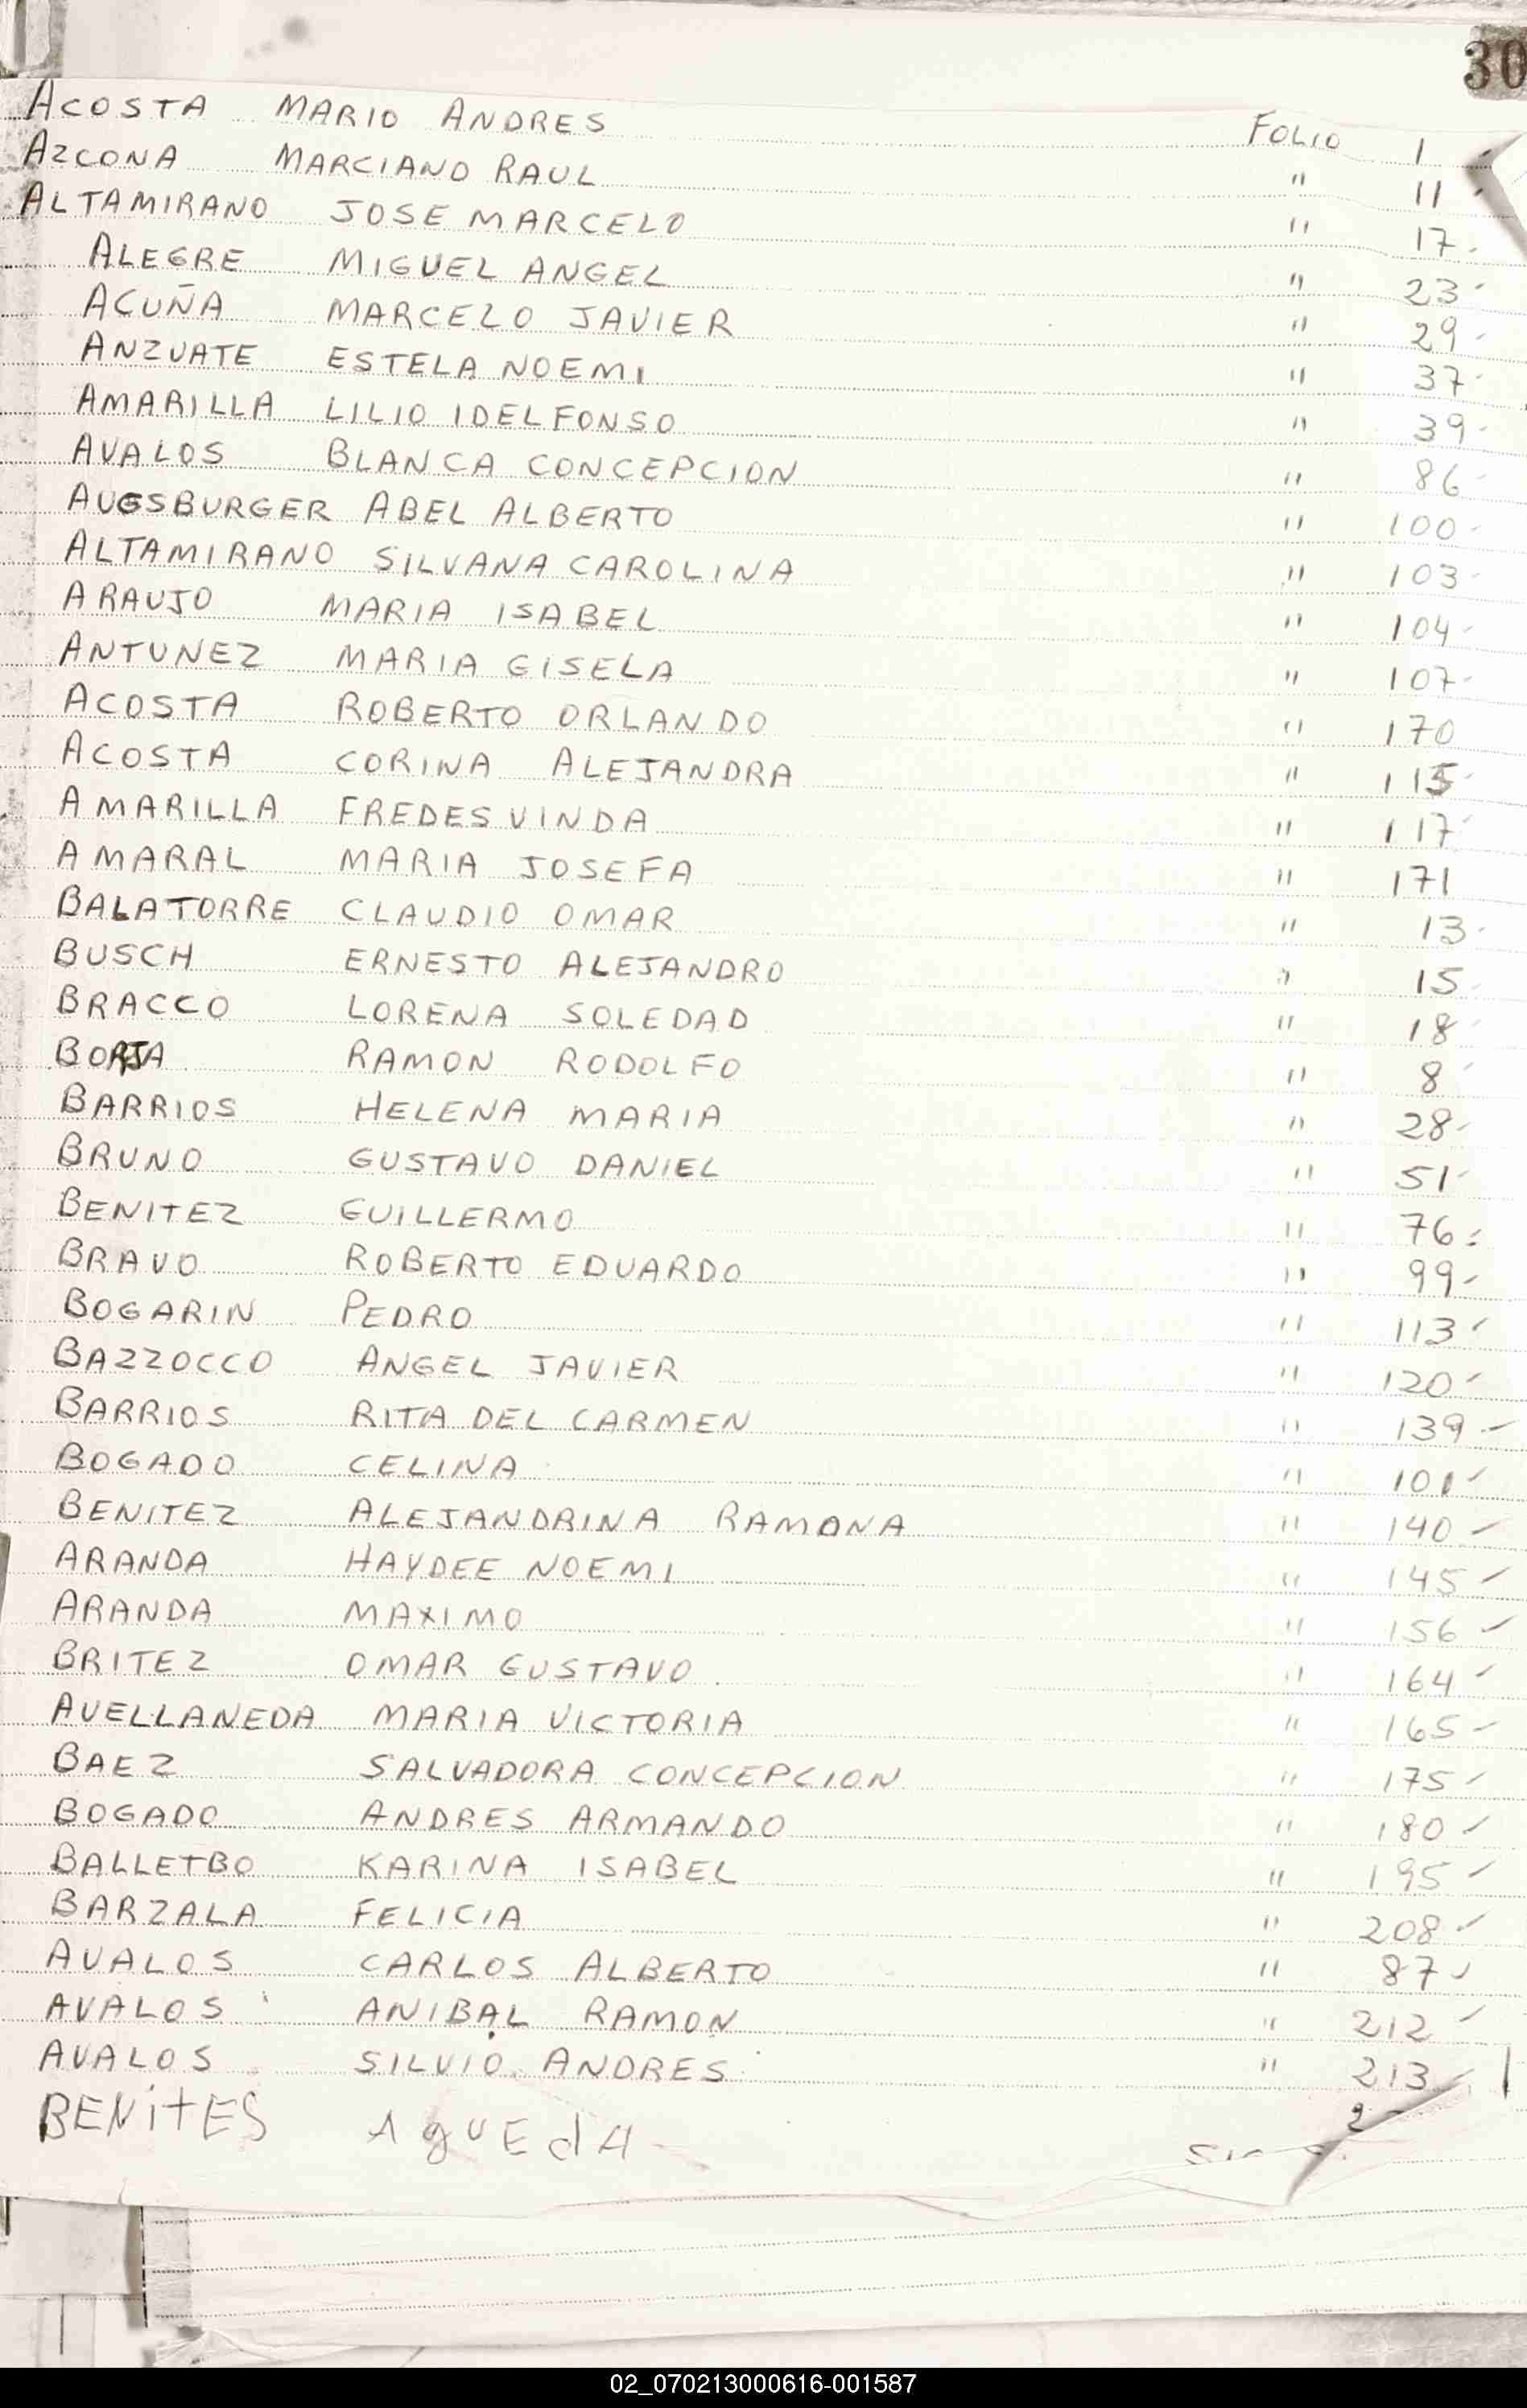 30
ACOSTA MARIO ANDRES FOLIO 1
AZCONA MARCIANO RAUL " 11
ALTAMIRANO JOSE MARCELO " 17
ALEGRE MIGUEL ANGEL " 23
ACUÑA MARCELO JAVIER " 29
ANZUATE ESTELA NOEMI " 37
AMARILLA LILIO IDELFONSO " 39
AVALOS BLANCA CONCEPCION " 86
AUGSBURGER ABEL ALBERTO " 100
ALTAMIRANO SILVANA CAROLINA " 103
ARAUJO MARIA ISABEL " 104
ANTUNEZ MARIA GISELA " 107
ACOSTA ROBERTO ORLANDO " 170
ACOSTA CORINA ALEJANDRA " 115
AMARILLA FREDESVINDA " 117
AMARAL MARIA JOSEFA " 171
BALATORRE CLAUDIO OMAR " 13
BUSCH ERNESTO ALEJANDRO " 15
BRACCO LORENA SOLEDAD " 18
BORJA RAMON RODOLFO " 8
BARRIOS HELENA MARIA " 28
BRUNO GUSTAVO DANIEL " 51
BENITEZ GUILLERMO " 76
BRAVO ROBERTO EDUARDO " 99
BOGARIN PEDRO " 113
BAZZOCCO ANGEL JAVIER " 120
BARRIOS RITA DEL CARMEN " 139
BOGADO CELINA " 101
BENITEZ ALEJANDRINA RAMONA " 140
ARANDA HAYDEE NOEMI " 145
ARANDA MAXIMO " 156
BRITEZ OMAR GUSTAVO " 164
AVELLANEDA MARIA VICTORIA " 165
BAEZ SALVADORA CONCEPCION " 175
BOGADO ANDRES ARMANDO " 180
BALLETBO KARINA ISABEL " 195
BARZALA FELICIA " 208
AVALOS CARLOS ALBERTO " 87
AVALOS ANIBAL RAMON " 212
AVALOS SILVIO ANDRES " 213
BENITES AgUEdA
02_070213000616-001587